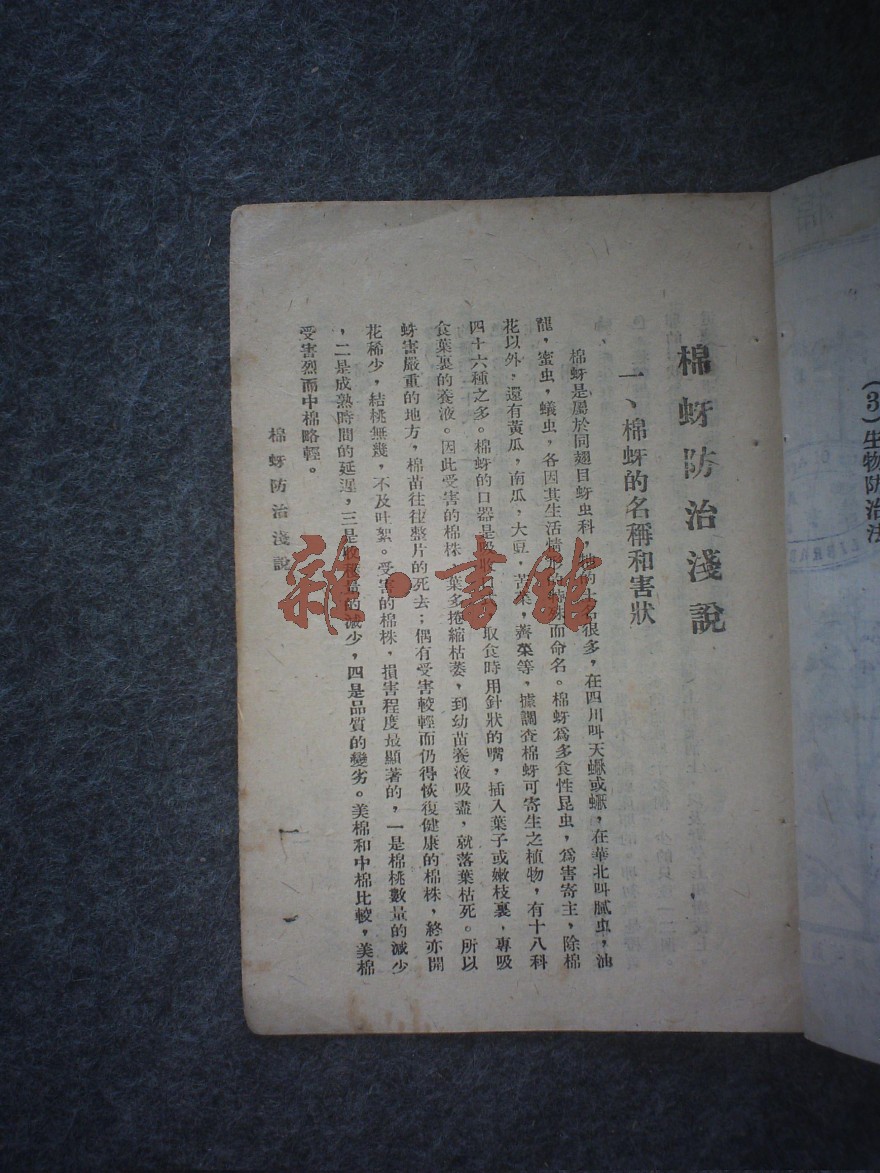 (3)生物防治法
棉蚜防治淺說
一、棉蚜的名稱和害狀
棉蚜是屬於同翅目蚜虫科，她的土名很多，在四川叫天蠍或蟨，在華北叫膩虫，油
蟲，蜜虫，蟻虫，各因其生活情形的特殊而命名。棉蚜爲多食性昆虫，爲害寄主，除棉
花以外，還有黃瓜，南瓜，大豆，苦菜，薺菜等，據調查棉蚜可寄生之植物，有十八科
四十六種之多。棉蚜的口器是吸 取食時用針狀的嘴，插入葉子或嫩枝裏，專吸
食葉裏的養液。因此受害的棉株 葉多捲縮枯萎，到幼苗養液吸盡，就落葉枯死。所以
蚜害嚴重的地方，棉苗往往整片的死去；偶有受害較輕而仍得恢復健康的棉株，終亦開
花稀少，結桃無幾，不及吐絮。受害的棉株，損害程度最顯著的，一是棉桃數量的減少
，二是成熟時間的延遲，三是收穫量的減少，四是品質的變劣。美棉和中棉比較，美棉
受害烈而中棉略輕。
棉蚜防治淺說
一
雜·書館